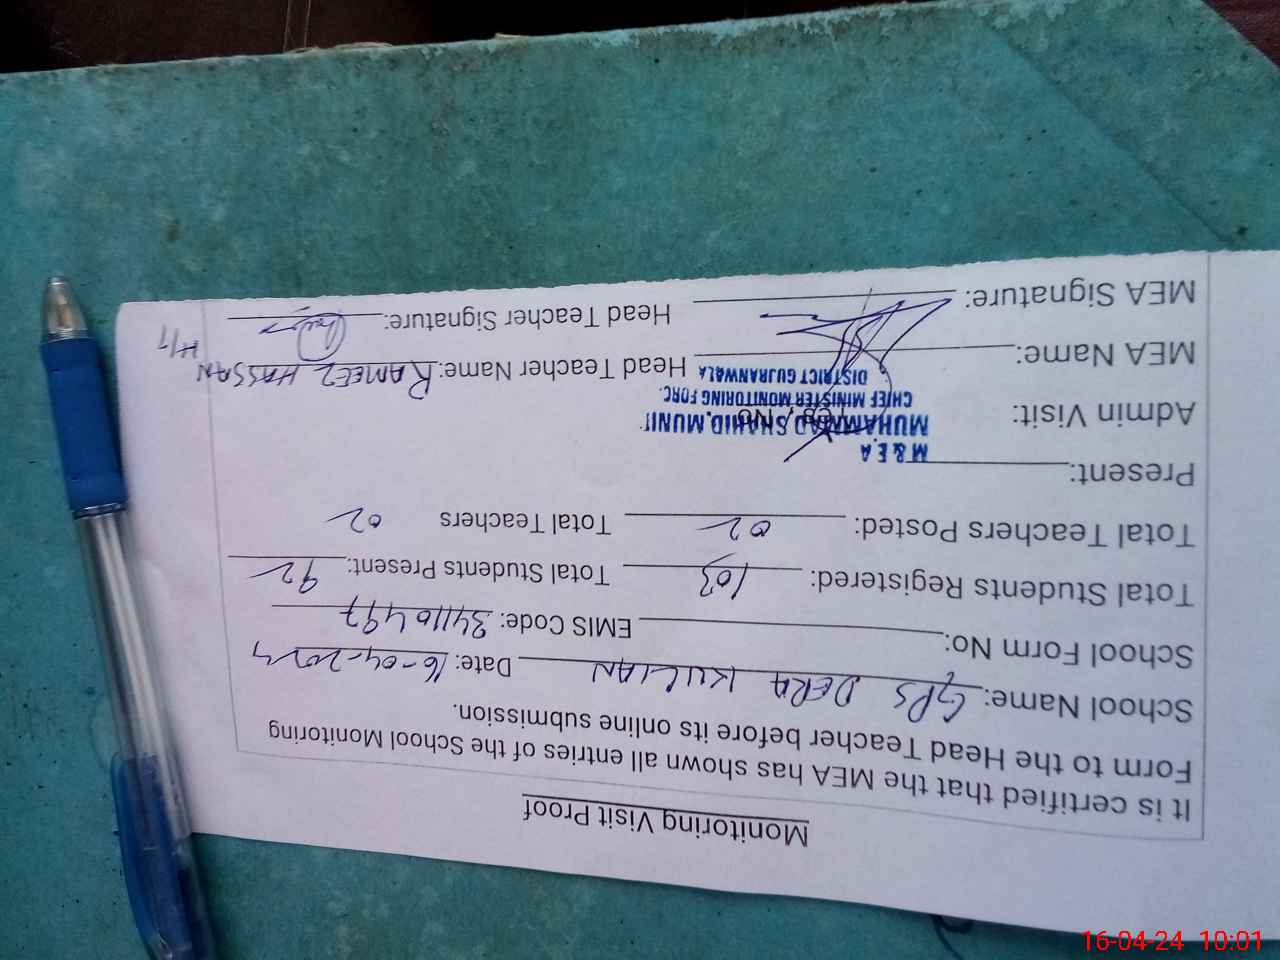 Monitoring Visit Proof
It is certified that the MEA has shown all entries of the School Monitoring
Form to the Head Teacher before its online submission.
School Name: GPS DERA KULIAN Date: 16-04-2024
School Form No: EMIS Code: 34110497
Total Students Registered: 103 Total Students Present: 92
Total Teachers Posted: 02 Total Teachers 02
Present:
M & E.A
Admin Visit: Yes / No
MUHAMMAD SHAHID MUNIR
CHIEF MINISTER MONITORING FORC
DISTRICT GUJRANWALA
MEA Name: Head Teacher Name: RAMEEZ HASSAN
H/T
MEA Signature: Head Teacher Signature:
16-04-24 10:01